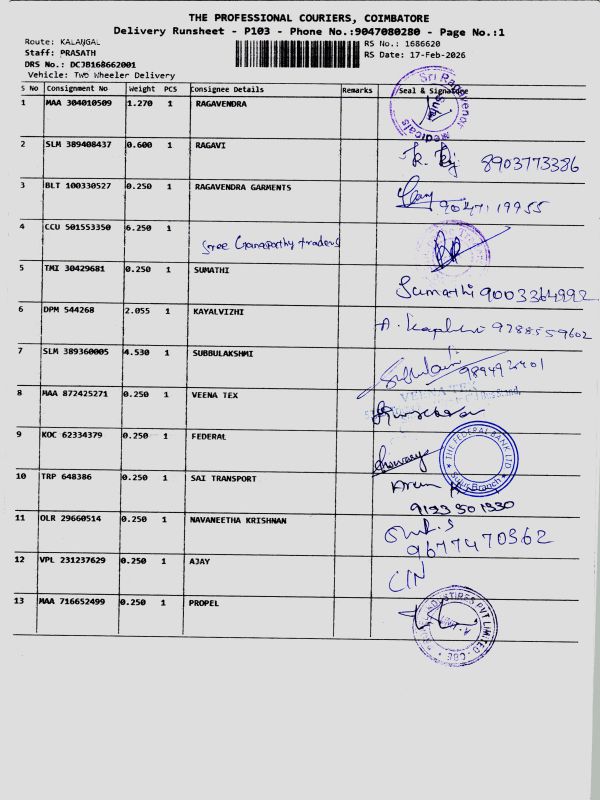 THE PROFESSIONAL COURIERS, COIMBATORE
Delivery Runsheet - P103 - Phone No.:9047080280 - Page No.:1
Route: KALANGAL
Staff: PRASATH
DRS No.: DCJB168662001
Vehicle: Two Wheeler Delivery
RS No.: 1686620
RS Date: 17-Feb-2026
S No Consignment No Weight PCS Consignee Details Remarks Seal & Signature
1 MAA 304010509 1.270 1 RAGAVENDRA
2 SLM 389408437 0.600 1 RAGAVI 8903773386
3 BLT 100330527 0.250 1 RAGAVENDRA GARMENTS 9047119955
4 CCU 501553350 6.250 1 Sree Ganapathy traders
5 TMI 30429681 0.250 1 SUMATHI Sumathi 9003364992
6 DPM 544268 2.055 1 KAYALVIZHI 9788559602
7 SLM 389360005 4.530 1 SUBBULAKSHMI
8 MAA 872425271 0.250 1 VEENA TEX VEENA TEX
9 KOC 62334379 0.250 1 FEDERAL THE FEDERAL BANK LTD
10 TRP 648386 0.250 1 SAI TRANSPORT
11 OLR 29660514 0.250 1 NAVANEETHA KRISHNAN 9677470362
12 VPL 231237629 0.250 1 AJAY C/N
13 MAA 716652499 0.250 1 PROPEL